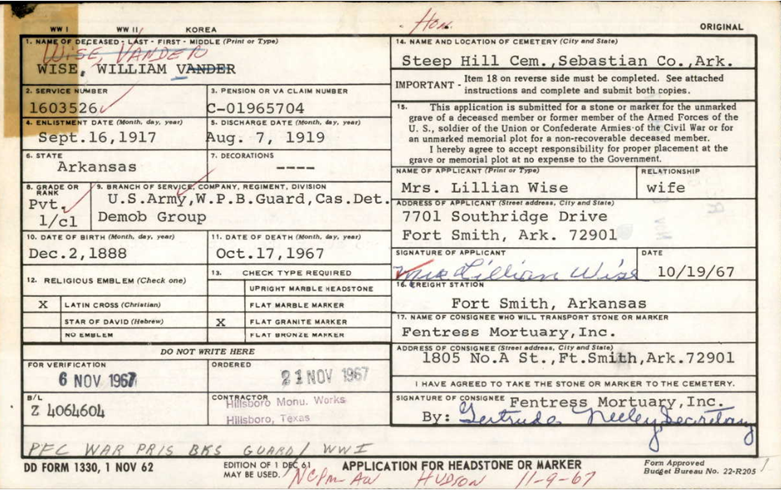 WW I WW II KOREA Hon. ORIGINAL
1. NAME OF DECEASED - LAST - FIRST - MIDDLE (Print or Type)
WISE, VANDER
WISE, WILLIAM VANDER
2. SERVICE NUMBER
1603526
3. PENSION OR VA CLAIM NUMBER
C-01965704
4. ENLISTMENT DATE (Month, day, year)
Sept.16,1917
5. DISCHARGE DATE (Month, day, year)
Aug. 7, 1919
6. STATE
Arkansas
7. DECORATIONS
----
8. GRADE OR RANK
Pvt.
1/cl
9. BRANCH OF SERVICE, COMPANY, REGIMENT, DIVISION
U.S.Army,W.P.B.Guard,Cas.Det.
Demob Group
10. DATE OF BIRTH (Month, day, year)
Dec.2,1888
11. DATE OF DEATH (Month, day, year)
Oct.17,1967
12. RELIGIOUS EMBLEM (Check one)
X LATIN CROSS (Christian)
STAR OF DAVID (Hebrew)
NO EMBLEM
13. CHECK TYPE REQUIRED
UPRIGHT MARBLE HEADSTONE
FLAT MARBLE MARKER
X FLAT GRANITE MARKER
FLAT BRONZE MARKER
DO NOT WRITE HERE
FOR VERIFICATION
6 NOV 1967
ORDERED
21 NOV 1967
B/L
Z 4064604
CONTRACTOR
Hillsboro Monu. Works
Hillsboro, Texas
14. NAME AND LOCATION OF CEMETERY (City and State)
Steep Hill Cem.,Sebastian Co.,Ark.
IMPORTANT - Item 18 on reverse side must be completed. See attached
instructions and complete and submit both copies.
15. This application is submitted for a stone or marker for the unmarked
grave of a deceased member or former member of the Armed Forces of the
U. S., soldier of the Union or Confederate Armies of the Civil War or for
an unmarked memorial plot for a non-recoverable deceased member.
I hereby agree to accept responsibility for proper placement at the
grave or memorial plot at no expense to the Government.
NAME OF APPLICANT (Print or Type)
Mrs. Lillian Wise
RELATIONSHIP
wife
ADDRESS OF APPLICANT (Street address, City and State)
7701 Southridge Drive
Fort Smith, Ark. 72901
SIGNATURE OF APPLICANT
Mrs Lillian Wise
DATE
10/19/67
16. FREIGHT STATION
Fort Smith, Arkansas
17. NAME OF CONSIGNEE WHO WILL TRANSPORT STONE OR MARKER
Fentress Mortuary,Inc.
ADDRESS OF CONSIGNEE (Street address, City and State)
1805 No.A St.,Ft.Smith,Ark.72901
I HAVE AGREED TO TAKE THE STONE OR MARKER TO THE CEMETERY.
SIGNATURE OF CONSIGNEE Fentress Mortuary,Inc.
By: Gertrude Neeley, Secretary
PFC WAR PRIS BKS GUARD/ WWI
DD FORM 1330, 1 NOV 62
EDITION OF 1 DEC 61
MAY BE USED.
APPLICATION FOR HEADSTONE OR MARKER
Form Approved
Budget Bureau No. 22-R205
HUDSON 11-9-67